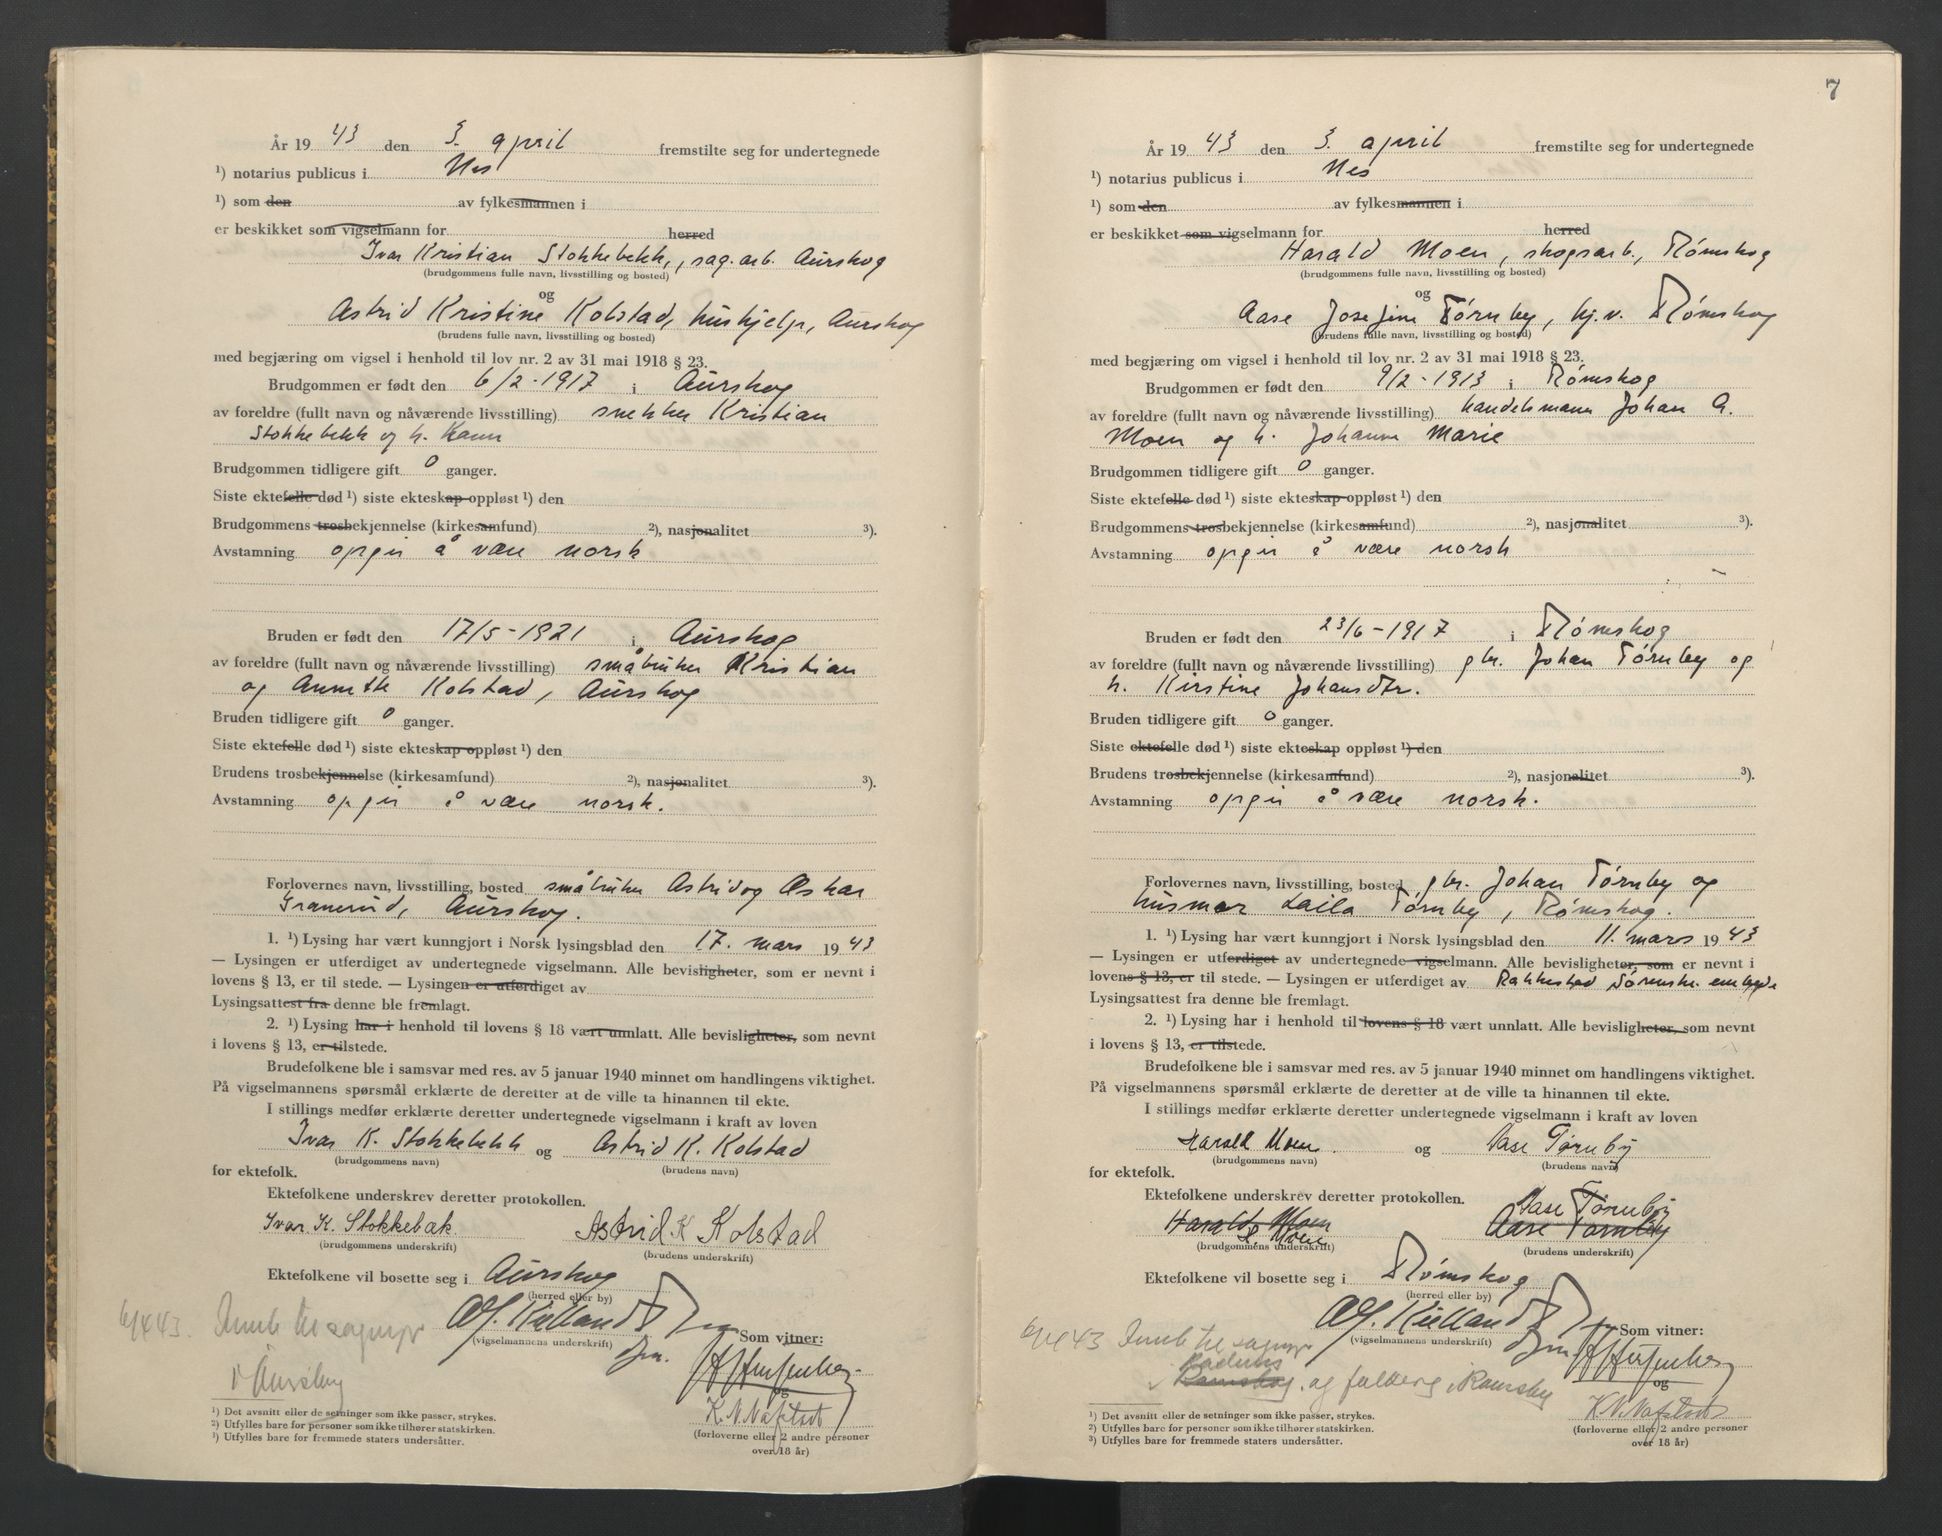 År 19 43 den 3. april fremstilte seg for undertegnede
¹) notarius publicus i Nes
¹) som den av fylkesmannen i
er beskikket som vigselmann for herred
Ivar Kristian Stokkebekk, sag.arb. Aurskog
(brudgommens fulle navn, livsstilling og bosted)
og
Astrid Kristine Kolstad, hushjelp, Aurskog
(brudens fulle navn, livsstilling og bosted)
med begjæring om vigsel i henhold til lov nr. 2 av 31 mai 1918 § 23.
Brudgommen er født den 6/2-1917 i Aurskog
av foreldre (fullt navn og nåværende livsstilling) snekker Kristian
Stokkebekk og h. Karen
Brudgommen tidligere gift 0 ganger.
Siste ektefelle død ¹) siste ekteskap oppløst ¹) den
Brudgommens trosbekjennelse (kirkesamfund) ²), nasjonalitet ³).
Avstamning opgir å være norsk
Bruden er født den 17/5-1921 i Aurskog
av foreldre (fullt navn og nåværende livsstilling) småbruker Kristian
og Annette Kolstad, Aurskog
Bruden tidligere gift 0 ganger.
Siste ektefelle død ¹) siste ekteskap oppløst ¹) den
Brudens trosbekjennelse (kirkesamfund) ²), nasjonalitet ³).
Avstamning opgir å være norsk.
Forlovernes navn, livsstilling, bosted småbruker Astrid og Oskar
Granerud, Aurskog.
1. ¹) Lysing har vært kunngjort i Norsk lysingsblad den 17. mars 1943
— Lysingen er utferdiget av undertegnede vigselmann. Alle bevisligheter, som er nevnt i
lovens § 13, er til stede. — Lysingen er utferdiget av
Lysingsattest fra denne ble fremlagt.
2. ¹) Lysing har i henhold til lovens § 18 vært unnlatt. Alle bevisligheter, som nevnt
i lovens § 13, er tilstede.
Brudefolkene ble i samsvar med res. av 5 januar 1940 minnet om handlingens viktighet.
På vigselmannens spørsmål erklærte de deretter at de ville ta hinannen til ekte.
I stillings medfør erklærte deretter undertegnede vigselmann i kraft av loven
Ivar K. Stokkebekk og Astrid K. Kolstad
(brudgommens navn) (brudens navn)
for ektefolk.
Ektefolkene underskrev deretter protokollen.
Ivar K. Stokkebæk Astrid K Kolstad
(brudgommens underskrift) (brudens underskrift)
Ektefolkene vil bosette seg i Aurskog
(herred eller by)
Kielland
(vigselmannens underskrift)
Som vitner:
og
K. N. Nafstad
(forloverne eller 2 andre personer
over 18 år)
¹) Det avsnitt eller de setninger som ikke passer, strykes.
²) Utfylles bare for personer som ikke tilhører statskirken.
³) Utfylles bare for fremmede staters undersåtter.
7
År 19 43 den 3. april fremstilte seg for undertegnede
¹) notarius publicus i Nes
¹) som den av fylkesmannen i
er beskikket som vigselmann for herred
Harald Moen, skogsarb., Rømskog
(brudgommens fulle navn, livsstilling og bosted)
og
Aase Josefine Tørnby, hj.v. Rømskog
(brudens fulle navn, livsstilling og bosted)
med begjæring om vigsel i henhold til lov nr. 2 av 31 mai 1918 § 23.
Brudgommen er født den 9/2-1913 i Rømskog
av foreldre (fullt navn og nåværende livsstilling) handelsmann Johan A.
Moen og h. Johanne Marie
Brudgommen tidligere gift 0 ganger.
Siste ektefelle død ¹) siste ekteskap oppløst ¹) den
Brudgommens trosbekjennelse (kirkesamfund) ²), nasjonalitet ³).
Avstamning opgir å være norsk
Bruden er født den 23/6-1917 i Rømskog
av foreldre (fullt navn og nåværende livsstilling) gbr. Johan Tørnby og
h. Kirstine Johansdtr.
Bruden tidligere gift 0 ganger.
Siste ektefelle død ¹) siste ekteskap oppløst ¹) den
Brudens trosbekjennelse (kirkesamfund) ²), nasjonalitet ³).
Avstamning opgir å være norsk.
Forlovernes navn, livsstilling, bosted gbr. Johan Tørnby og
husmor Laila Tørnby, Rømskog.
1. ¹) Lysing har vært kunngjort i Norsk lysingsblad den 11. mars 1943
— Lysingen er utferdiget av undertegnede vigselmann. Alle bevisligheter, som er nevnt i
lovens § 13, er til stede. — Lysingen er utferdiget av Rakkestad sorenskr. embede
Lysingsattest fra denne ble fremlagt.
2. ¹) Lysing har i henhold til lovens § 18 vært unnlatt. Alle bevisligheter, som nevnt
i lovens § 13, er tilstede.
Brudefolkene ble i samsvar med res. av 5 januar 1940 minnet om handlingens viktighet.
På vigselmannens spørsmål erklærte de deretter at de ville ta hinannen til ekte.
I stillings medfør erklærte deretter undertegnede vigselmann i kraft av loven
Harald Moen og Aase Tørnby
(brudgommens navn) (brudens navn)
for ektefolk.
Ektefolkene underskrev deretter protokollen.
Aase Tørnby
Harald Moen Aase Tørnby
Moen
(brudgommens underskrift) (brudens underskrift)
Ektefolkene vil bosette seg i Rømskog
(herred eller by)
Kielland
(vigselmannens underskrift)
Som vitner:
og
K. N. Nafstad
(forloverne eller 2 andre personer
over 18 år)
¹) Det avsnitt eller de setninger som ikke passer, strykes.
²) Utfylles bare for personer som ikke tilhører statskirken.
³) Utfylles bare for fremmede staters undersåtter.